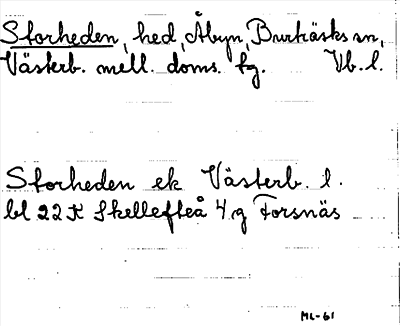 Storheden, hed, Åbyn, Burträsks sn,
Västerb. mell. doms. fg. Vb. l.
Storheden ek Västerb. l.
bl 22 K Skellefteå 4 g Forsnäs
ML-61